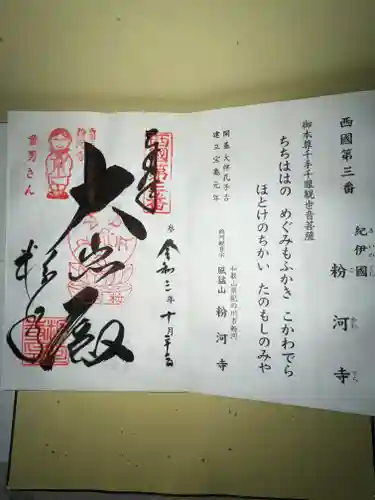 西國第三番
紀伊國 粉河寺
きいのくに こかわでら
御本尊千手千眼観世音菩薩
ちちははの めぐみもふかき こかわでら
ほとけのちかい たのもしのみや
開基 大伴孔子古
建立 宝亀元年
和歌山県紀の川市粉河
風猛山 粉河寺
西國第三番
奉拝
令和二年十月二十五日
大悲殿
粉河寺
童男さん